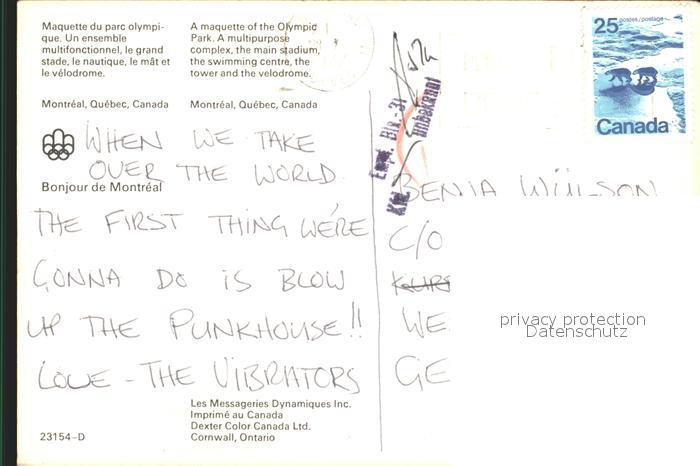 Maquette du parc olympi-
que. Un ensemble
multifonctionnel, le grand
stade, le nautique, le mât et
le vélodrome.
Montréal, Québec, Canada
A maquette of the Olympic
Park. A multipurpose
complex, the main stadium,
the swimming centre, the
tower and the velodrome.
Montréal, Québec, Canada
WHEN WE TAKE
OVER THE WORLD
Bonjour de Montréal
THE FIRST THING WE'RE
GONNA DO IS BLOW
UP THE PUNKHOUSE!!
LOVE - THE VIBRATORS
Les Messageries Dynamiques Inc.
Imprimé au Canada
Dexter Color Canada Ltd.
Cornwall, Ontario
23154-D
Empf. Blk.-31
unbekannt
25 postes/postage
Canada
BENIA
C/O
WE
GE
privacy protection
Datenschutz